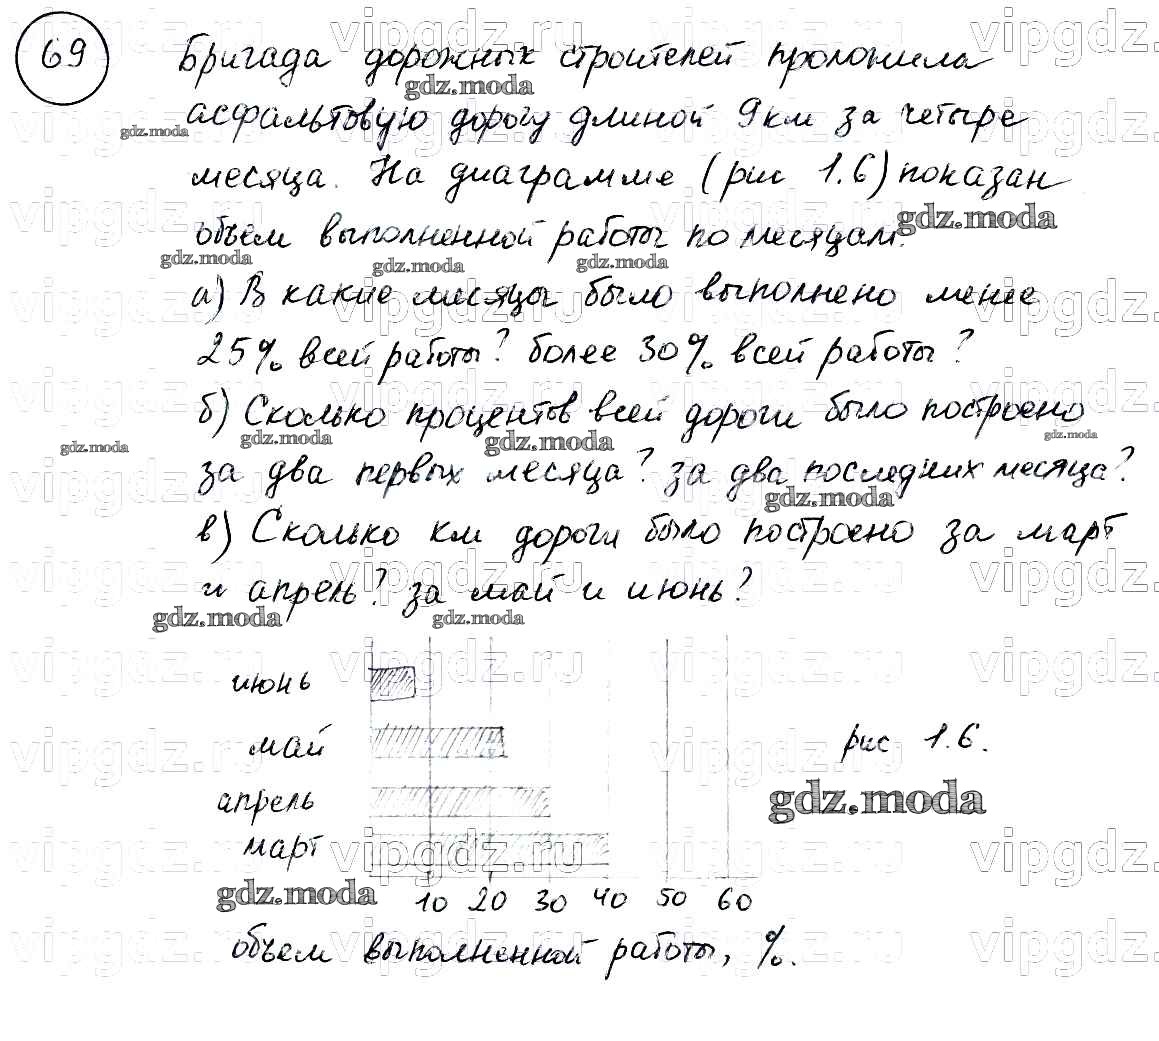 69 Бригада дорожных строителей проложила
асфальтовую дорогу длиной 9 км за четыре
месяца. На диаграмме (рис 1.6) показан
объем выполненной работы по месяцам.
а) В какие месяцы было выполнено менее
25% всей работы? более 30% всей работы?
б) Сколько процентов всей дороги было построено
за два первых месяца? за два последних месяца?
в) Сколько км дороги было построено за март
и апрель? за май и июнь?
июнь
май
рис 1.6.
апрель
март
10 20 30 40 50 60
объем выполненной работы, %.
vipgdz.ru
gdz.moda